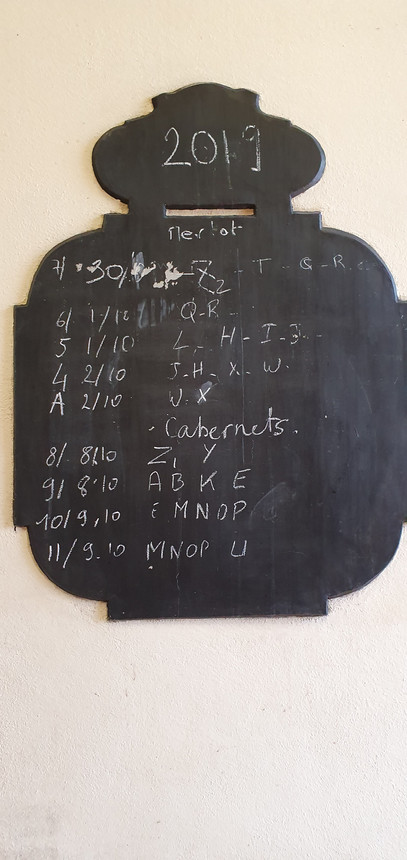 2019
Merlot
7/ 30/ Z2 - T - Q - R
6/ 1/10 Q-R-
5 1/10 L - H - I - J -
4 2/10 J-H - X - W.
A 2/10 W X
- Cabernets.
8/ 8/10 Z1 Y
9/ 8.10 A B K E
10/9,10 E M N O P
11/9.10 M N O P U